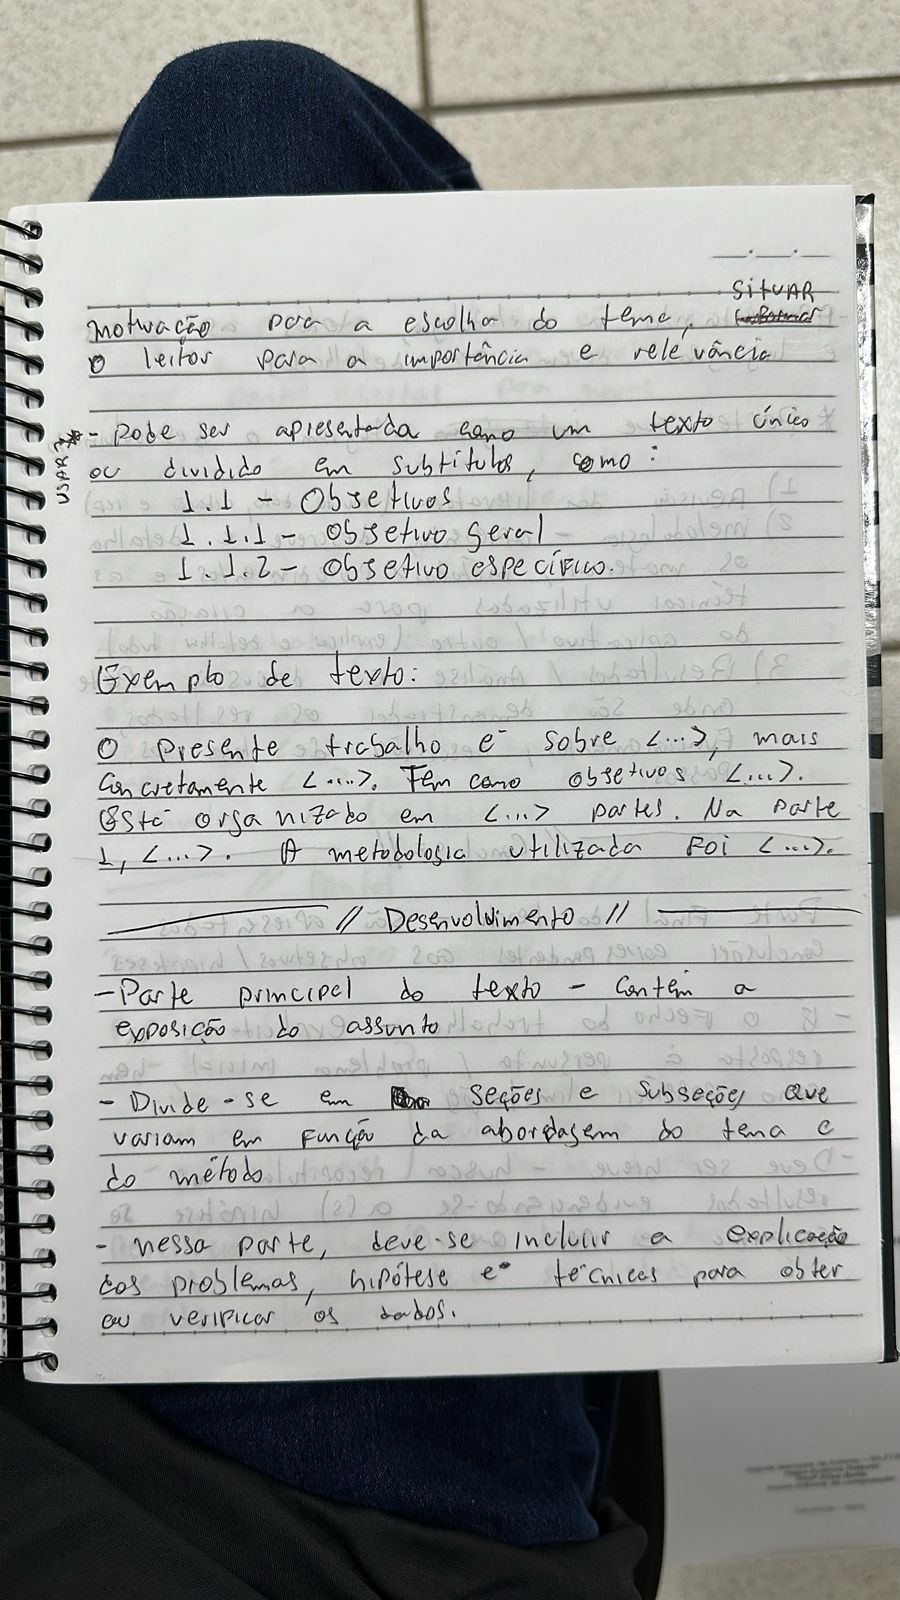 SITUAR
motivação para a escolha do tema,
o leitor para a importância e relevância
USAR?* - pode ser apresentada como um texto único
ou dividido em subtítulos, como:
1.1 - Objetivos
1.1.1 - Objetivo Geral
1.1.2 - Objetivo específico.
Exemplo de texto:
O presente trabalho é sobre <...>, mais
concretamente <....>. Tem como objetivos <...>.
Está organizado em <...> partes. Na parte
1, <...>. A metodologia utilizada foi <...>.
// Desenvolvimento //
- Parte principal do texto - contém a
exposição do assunto
- Divide-se em seções e subseções que
variam em função da abordagem do tema e
do método
- nessa parte, deve-se incluir a explicação
dos problemas, hipótese e técnicas para obter
ou verificar os dados.